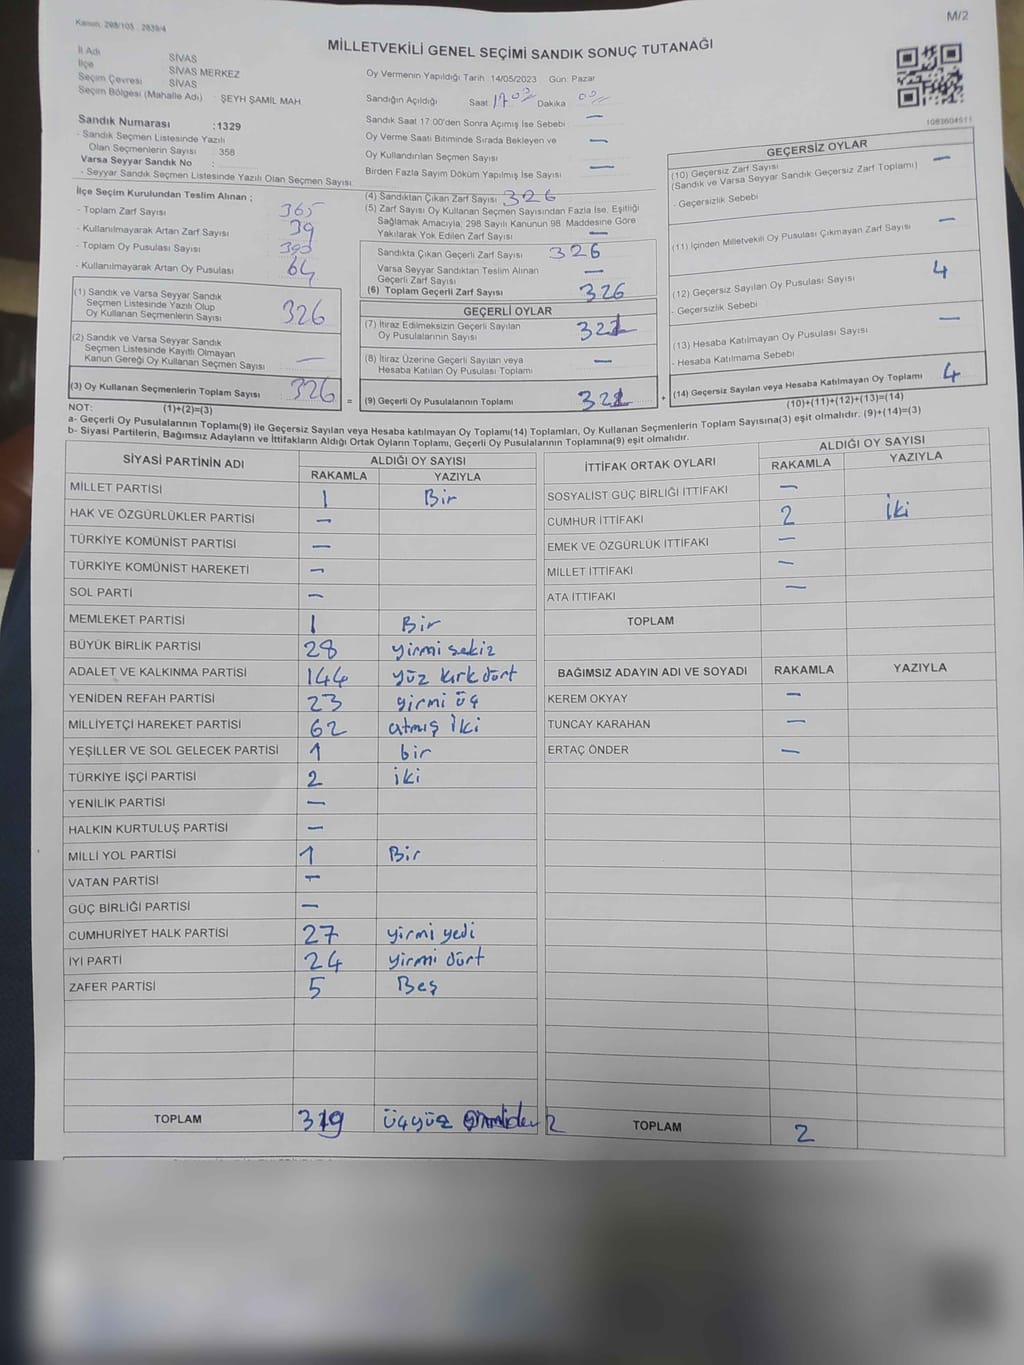 Kanun: 298/105 , 2839/4
M/2
MİLLETVEKİLİ GENEL SEÇİMİ SANDIK SONUÇ TUTANAĞI
İl Adı SİVAS
İlçe SİVAS MERKEZ
Seçim Çevresi SİVAS
Seçim Bölgesi (Mahalle Adı) : ŞEYH ŞAMİL MAH.
Sandık Numarası :1329
- Sandık Seçmen Listesinde Yazılı
Olan Seçmenlerin Sayısı : 358
Varsa Seyyar Sandık No :
- Seyyar Sandık Seçmen Listesinde Yazılı Olan Seçmen Sayısı
Oy Vermenin Yapıldığı Tarih : 14/05/2023 Gün: Pazar
Sandığın Açıldığı Saat 17 Dakika
Sandık Saat 17:00'den Sonra Açımış İse Sebebi : —
Oy Verme Saati Bitiminde Sırada Bekleyen ve —
Oy Kullandırılan Seçmen Sayısı
Birden Fazla Sayım Döküm Yapılmış İse Sayısı —
1083604511
İlçe Seçim Kurulundan Teslim Alınan ;
- Toplam Zarf Sayısı 365
- Kullanılmayarak Artan Zarf Sayısı 39
- Toplam Oy Pusulası Sayısı
- Kullanılmayarak Artan Oy Pusulası 64
(1) Sandık ve Varsa Seyyar Sandık
Seçmen Listesinde Yazılı Olup
Oy Kullanan Seçmenlerin Sayısı 326
(2) Sandık ve Varsa Seyyar Sandık
Seçmen Listesinde Kayıtlı Olmayan
Kanun Gereği Oy Kullanan Seçmen Sayısı —
(3) Oy Kullanan Seçmenlerin Toplam Sayısı 326 =
(1)+(2)=(3)
(4) Sandıktan Çıkan Zarf Sayısı 326
(5) Zarf Sayısı Oy Kullanan Seçmen Sayısından Fazla İse, Eşitliği
Sağlamak Amacıyla; 298 Sayılı Kanunun 98. Maddesine Göre
Yakılarak Yok Edilen Zarf Sayısı —
Sandıkta Çıkan Geçerli Zarf Sayısı 326
Varsa Seyyar Sandıktan Teslim Alınan
Geçerli Zarf Sayısı —
(6) Toplam Geçerli Zarf Sayısı 326
GEÇERLİ OYLAR
(7) İtiraz Edilmeksizin Geçerli Sayılan
Oy Pusulalarının Sayısı 321
(8) İtiraz Üzerine Geçerli Sayılan veya
Hesaba Katılan Oy Pusulası Toplamı —
(9) Geçerli Oy Pusulalarının Toplamı 321 +
GEÇERSİZ OYLAR
(10) Geçersiz Zarf Sayısı —
(Sandık ve Varsa Seyyar Sandık Geçersiz Zarf Toplamı)
- Geçersizlik Sebebi
(11) İçinden Milletvekili Oy Pusulası Çıkmayan Zarf Sayısı —
(12) Geçersiz Sayılan Oy Pusulası Sayısı 4
- Geçersizlik Sebebi
(13) Hesaba Katılmayan Oy Pusulası Sayısı —
- Hesaba Katılmama Sebebi
(14) Geçersiz Sayılan veya Hesaba Katılmayan Oy Toplamı 4
(10)+(11)+(12)+(13)=(14)
NOT:
a- Geçerli Oy Pusulalarının Toplamı(9) ile Geçersiz Sayılan veya Hesaba katılmayan Oy Toplamı(14) Toplamları, Oy Kullanan Seçmenlerin Toplam Sayısına(3) eşit olmalıdır. (9)+(14)=(3)
b- Siyasi Partilerin, Bağımsız Adayların ve İttifakların Aldığı Ortak Oyların Toplamı, Geçerli Oy Pusulalarının Toplamına(9) eşit olmalıdır.
SİYASİ PARTİNİN ADI ALDIĞI OY SAYISI
RAKAMLA YAZIYLA
MİLLET PARTİSİ 1 Bir
HAK VE ÖZGÜRLÜKLER PARTİSİ —
TÜRKİYE KOMÜNİST PARTİSİ —
TÜRKİYE KOMÜNİST HAREKETİ —
SOL PARTİ —
MEMLEKET PARTİSİ 1 Bir
BÜYÜK BİRLİK PARTİSİ 28 yirmi sekiz
ADALET VE KALKINMA PARTİSİ 144 yüz kırk dört
YENİDEN REFAH PARTİSİ 23 yirmi üç
MİLLİYETÇİ HAREKET PARTİSİ 62 atmış iki
YEŞİLLER VE SOL GELECEK PARTİSİ 1 bir
TÜRKİYE İŞÇİ PARTİSİ 2 iki
YENİLİK PARTİSİ —
HALKIN KURTULUŞ PARTİSİ —
MİLLİ YOL PARTİSİ 1 Bir
VATAN PARTİSİ —
GÜÇ BİRLİĞİ PARTİSİ —
CUMHURİYET HALK PARTİSİ 27 yirmi yedi
İYİ PARTİ 24 yirmi dört
ZAFER PARTİSİ 5 Beş
TOPLAM 319 üçyüz
İTTİFAK ORTAK OYLARI ALDIĞI OY SAYISI
RAKAMLA YAZIYLA
SOSYALİST GÜÇ BİRLİĞİ İTTİFAKI —
CUMHUR İTTİFAKI 2 iki
EMEK VE ÖZGÜRLÜK İTTİFAKI —
MİLLET İTTİFAKI —
ATA İTTİFAKI —
TOPLAM
BAĞIMSIZ ADAYIN ADI VE SOYADI RAKAMLA YAZIYLA
KEREM OKYAY —
TUNCAY KARAHAN —
ERTAÇ ÖNDER —
TOPLAM 2